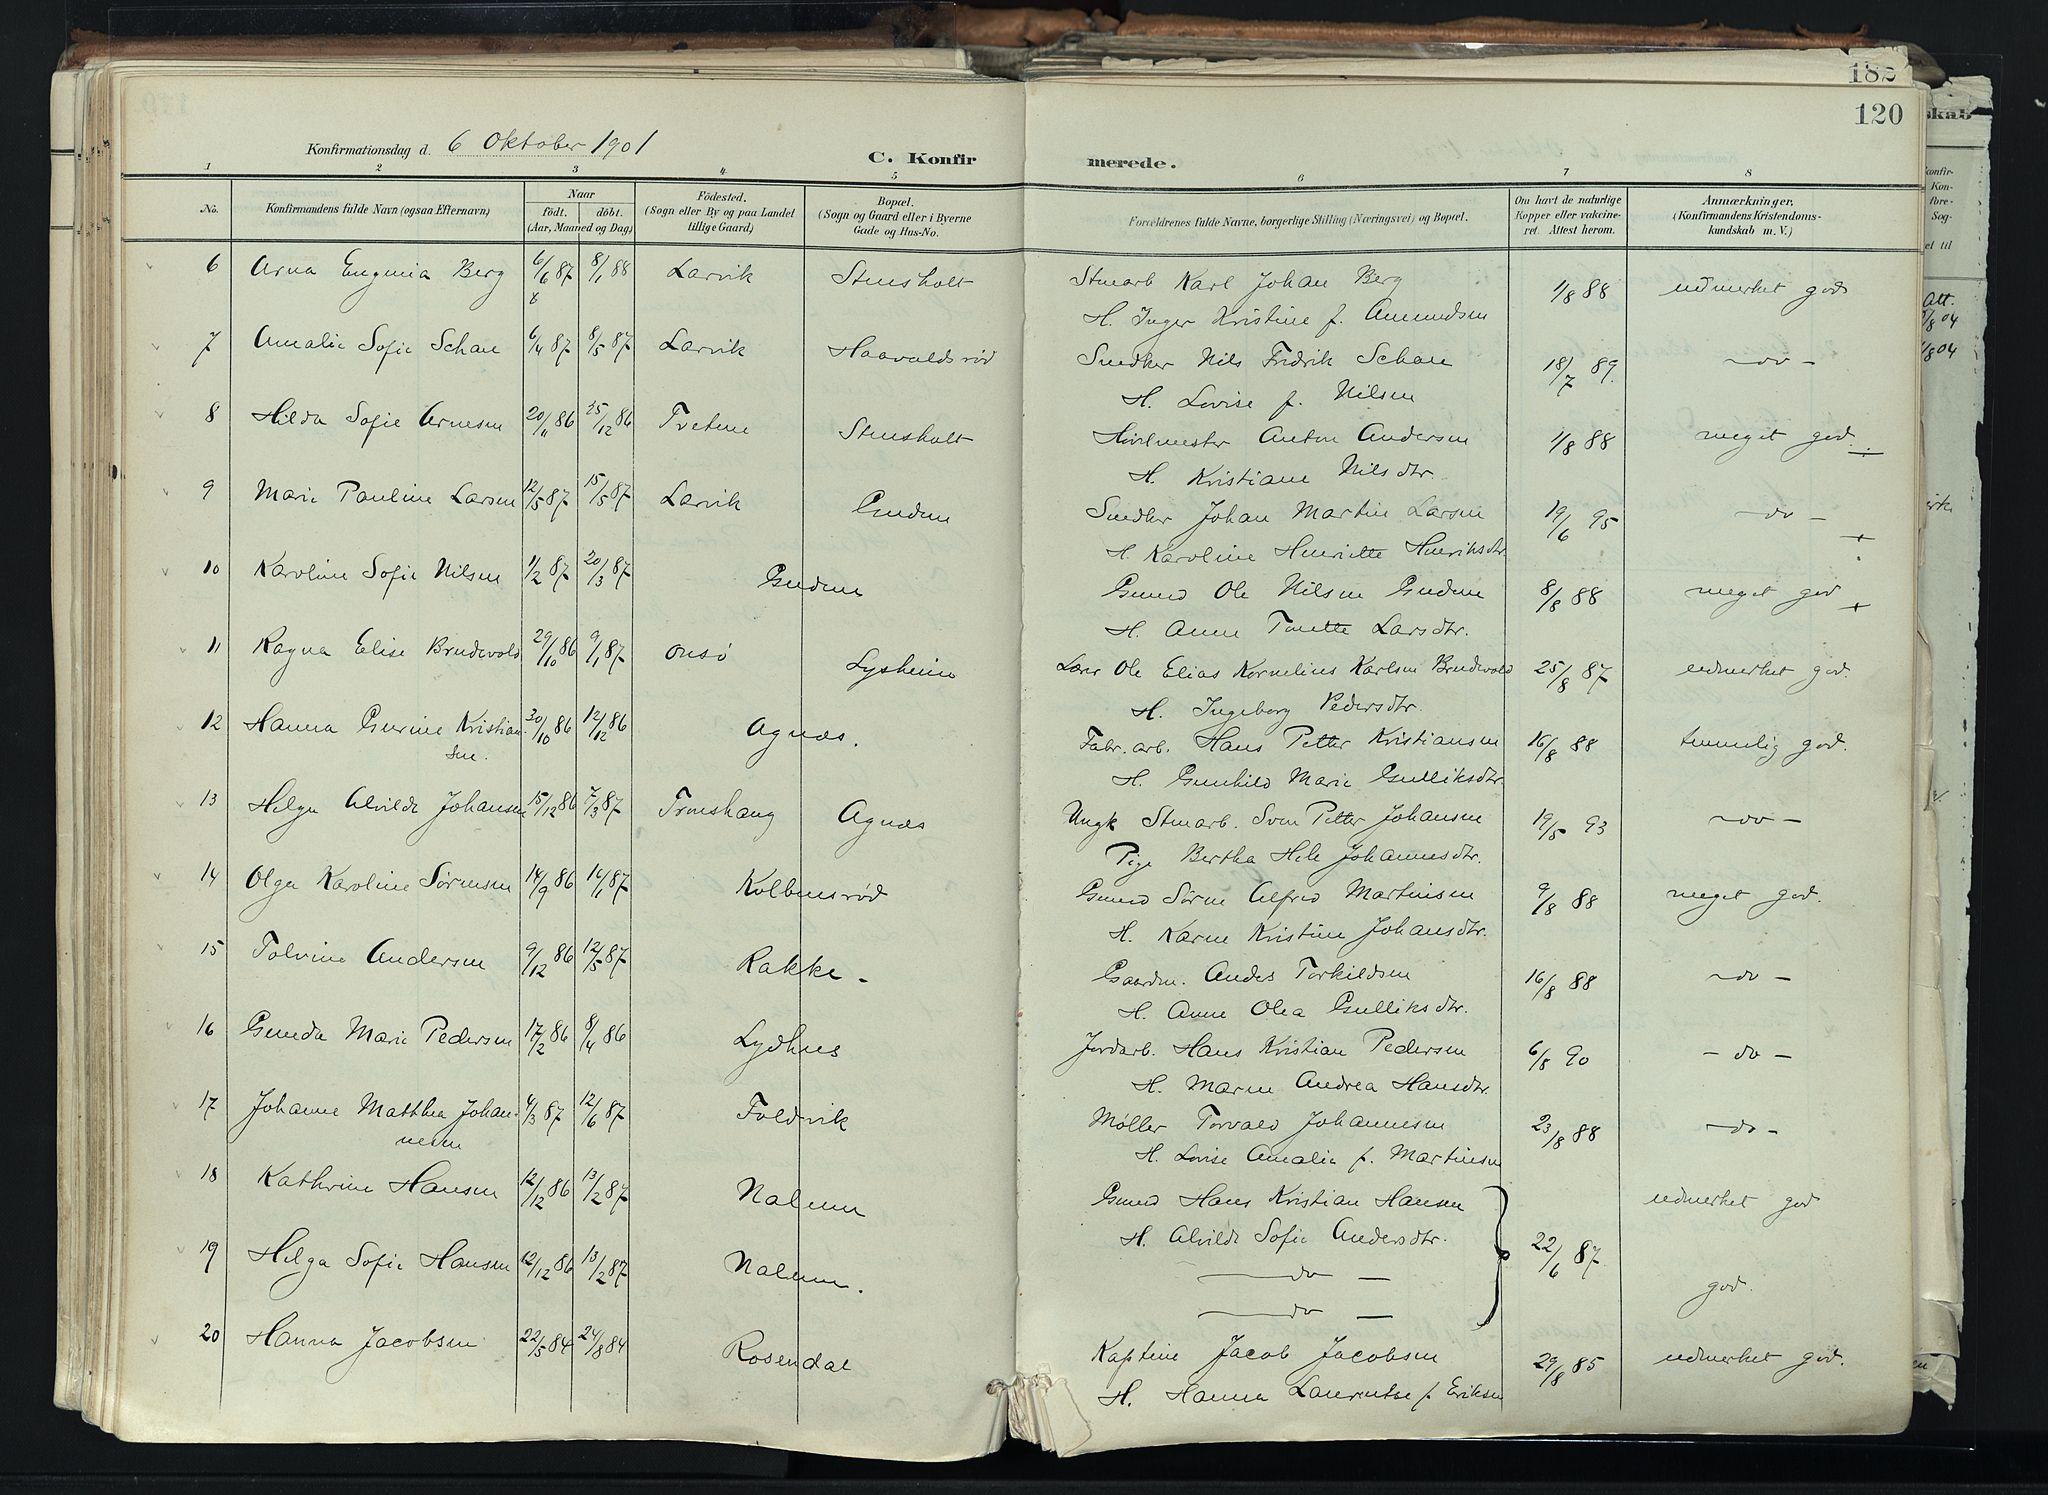 182
120
Konfirmationsdag d. 6 Oktober 1901
C. Konfir merede.
1 2 3 4 5 6 7 8
No. Konfirmandens fulde Navn (ogsaa Efternavn) Naar födt. döbt. (Aar, Maaned og Dag) Födested. (Sogn eller By og paa Landet tillige Gaard) Bopæl. (Sogn og Gaard eller i Byerne Gade og Hus-No. Forældrenes fulde Navne, borgerlige Stilling (Næringsvei) og Bopæl. Om havt de naturlige Kopper eller vakcineret. Attest herom. Anmærkninger, (Konfirmandens Kristendomskundskab m. V.)
6 Arna Eugenia Berg 6/6 87 8/1 88 Larvik Stensholt Stenarb Karl Johan Berg 1/8 88 udmerket god
H. Inger Kristine f. Amundsen
7 Amalie Sofie Schau 6/4 87 8/5 87 Larvik Haavaldsrød Snedker Nils Fredrik Schau 18/7 89. – do –
H. Lovise f. Nilsen
8 Hilda Sofie Arnesen 20/11 86 25/12 86 Tvetene Stensholt Anton Andersen 1/8 88 meget god
H. Kristiane Nilsdtr.
9 Marie Pauline Larsen 12/5 87 15/5 87 Larvik Guden Snedker Johan Martin Larsen 19/6 95 – do –
H. Karoline Henriette Henriksdtr
10 Karoline Sofie Nilsen 1/2 87 20/3 87 Gudem Gmd Ole Nilsen Gudem 8/8 88 meget god
H. Anne Tonette Larsdtr.
11 Ragna Elise Brudevold 29/10 86 9/1 87 Onsö Lysheim Lærer Ole Elias Kornelius Karlsen Brudevold 25/8 87 udmerket god.
H. Ingeborg Pedersdtr.
12 Hanna Gurine Kristian- 30/10 86 12/12 86 Agnæs. Fabr. arb. Hans Petter Kristiansen 16/8 88 temmelig god.
sen. H. Gunhild Marie Gulliksdtr.
13 Helga Alvilde Johansen 15/12 86 7/3 87 Tronshaug Agnæs Ungk Stenarb. Sven Petter Johansen 19/5 93 – do –
Pige Bertha Hele Johannesdtr.
14 Olga Karoline Sørensen 14/9 86 16/1 87 Kolbensrød Gmd Sørne Alfred Martinsen 9/8 88 meget god.
H. Karen Kristine Johansdtr.
15 Tolvine Andersen 9/12 86 12/5 87 Rakke – Gaardm. Andes Torkildsen 16/8 88 – do –
H. Anne Olea Gulliksdtr.
16 Gunda Marie Pedersen 17/2 86 8/4 86 Lydhus Jordarb. Hans Kristian Pedersen 6/8 90 – do –
H. Maren Andrea Hansdtr.
17 Johanne Matthea Johan- 4/3 87 12/6 87 Foldvik Møller Torvald Johannesen 23/8 88 – do –
nesen H. Lovise Amalie f. Martinsen
18 Kathrine Hansen 12/12 86 13/2 87 Nalum Gmd Hans Kristian Hansen udmerket god
H. Alvilde Sofie Andersdtr.
19 Helga Sofie Hansen 12/12 86 13/2 87 Nalum. – do – 22/6 87
– do – god.
20 Hanna Jacobsen 22/5 84 24/8 84 Rosendal Kaptein Jacob Jacobsen 29/8 85 udmerket god.
H. Hanna Laurentse f. Eriksen